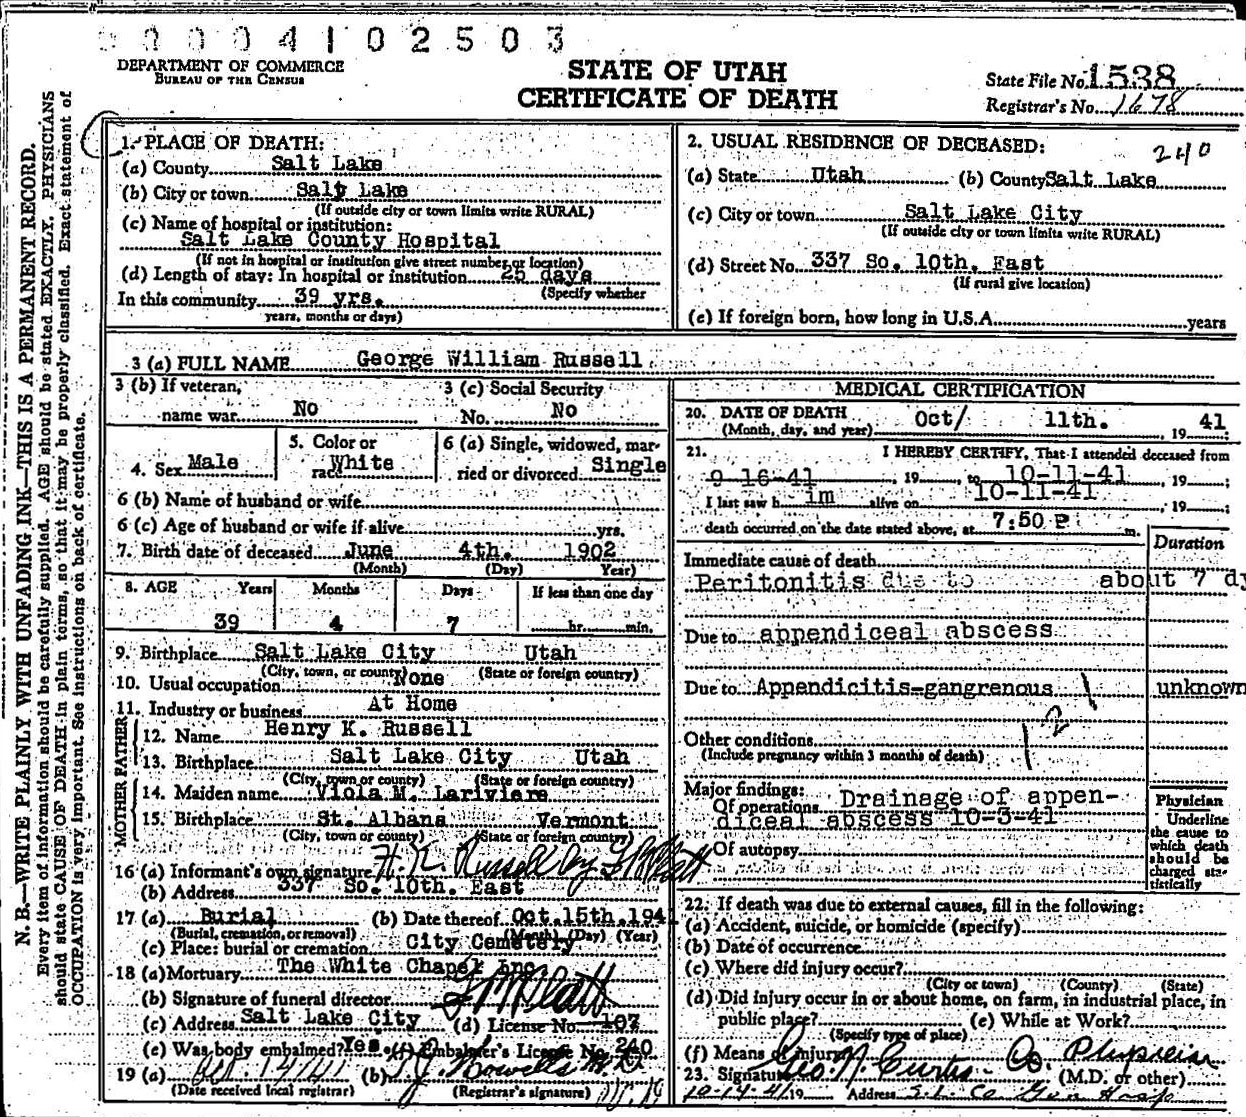 0 0 0 0 4 1 0 2 5 0 3
DEPARTMENT OF COMMERCE
BUREAU OF THE CENSUS
STATE OF UTAH
CERTIFICATE OF DEATH
State File No. 1538
Registrar's No. 1678
N. B.—WRITE PLAINLY WITH UNFADING INK—THIS IS A PERMANENT RECORD.
Every item of information should be carefully supplied. AGE should be stated EXACTLY. PHYSICIANS
should state CAUSE OF DEATH in plain terms, so that it may be properly classified. Exact statement of
OCCUPATION is very important. See instructions on back of certificate.
1. PLACE OF DEATH:
(a) County Salt Lake
(b) City or town Salt Lake
(If outside city or town limits write RURAL)
(c) Name of hospital or institution:
Salt Lake County Hospital
(If not in hospital or institution give street number or location)
(d) Length of stay: In hospital or institution 25 days
(Specify whether
In this community 39 yrs.
years, months or days)
2. USUAL RESIDENCE OF DECEASED:
240
(a) State Utah (b) County Salt Lake
(c) City or town Salt Lake City
(If outside city or town limits write RURAL)
(d) Street No. 337 So. 10th. East
(If rural give location)
(e) If foreign born, how long in U.S.A. years
3 (a) FULL NAME George William Russell
3 (b) If veteran,
name war No
3 (c) Social Security
No. No
4. Sex Male
5. Color or
race White
6 (a) Single, widowed, mar-
ried or divorced Single
6 (b) Name of husband or wife
6 (c) Age of husband or wife if alive yrs.
7. Birth date of deceased June 4th. 1902
(Month) (Day) Year)
8. AGE Years Months Days If less than one day
39 4 7 hr. min.
9. Birthplace Salt Lake City Utah
(City, town, or county) (State or foreign country)
10. Usual occupation None
11. Industry or business At Home
FATHER
12. Name Henry K. Russell
13. Birthplace Salt Lake City Utah
(City, town or county) (State or foreign country)
MOTHER
14. Maiden name Viola M. Lariviere
15. Birthplace St. Albans Vermont
(City, town or county) (State or foreign country)
16 (a) Informant's own signature H. K. Russell by
(b) Address 337 So. 10th. East
17 (a) Burial (b) Date thereof Oct. 15th. 1941
(Burial, cremation, or removal) (Month) (Day) (Year)
(c) Place: burial or cremation City Cemetery
18 (a) Mortuary The White Chapel Inc
(b) Signature of funeral director
(c) Address Salt Lake City (d) License No. 107
(e) Was body embalmed? Yes (f) Embalmer's License No. 240
19 (a) Oct. 14/41 (b) T. J. Howells M.D.
(Date received local registrar) (Registrar's signature)
MEDICAL CERTIFICATION
20. DATE OF DEATH
(Month, day, and year) Oct/ 11th. , 19 41;
21. I HEREBY CERTIFY, That I attended deceased from
9-16-41 , 19 , to 10-11-41 , 19 ;
I last saw h im alive on 10-11-41 , 19 ;
death occurred on the date stated above, at 7:50 P m.
Duration
Immediate cause of death
Peritonitis due to about 7 dy
Due to appendiceal abscess
Due to Appendicitis-gangrenous unknown
121
Other conditions
(Include pregnancy within 3 months of death)
Major findings:
Of operations Drainage of appen-
diceal abscess 10-3-41
Of autopsy
Physician
Underline
the cause to
which death
should be
charged sta-
tistically
22. If death was due to external causes, fill in the following:
(a) Accident, suicide, or homicide (specify)
(b) Date of occurrence
(c) Where did injury occur?
(City or town) (County) (State)
(d) Did injury occur in or about home, on farm, in industrial place, in
public place? (e) While at Work?
(Specify type of place)
(f) Means of injury
23. Signature Geo. N. Curtis Co. Physician
(M.D. or other)
10-14-41 19 Address S. L. Co Gen Hosp